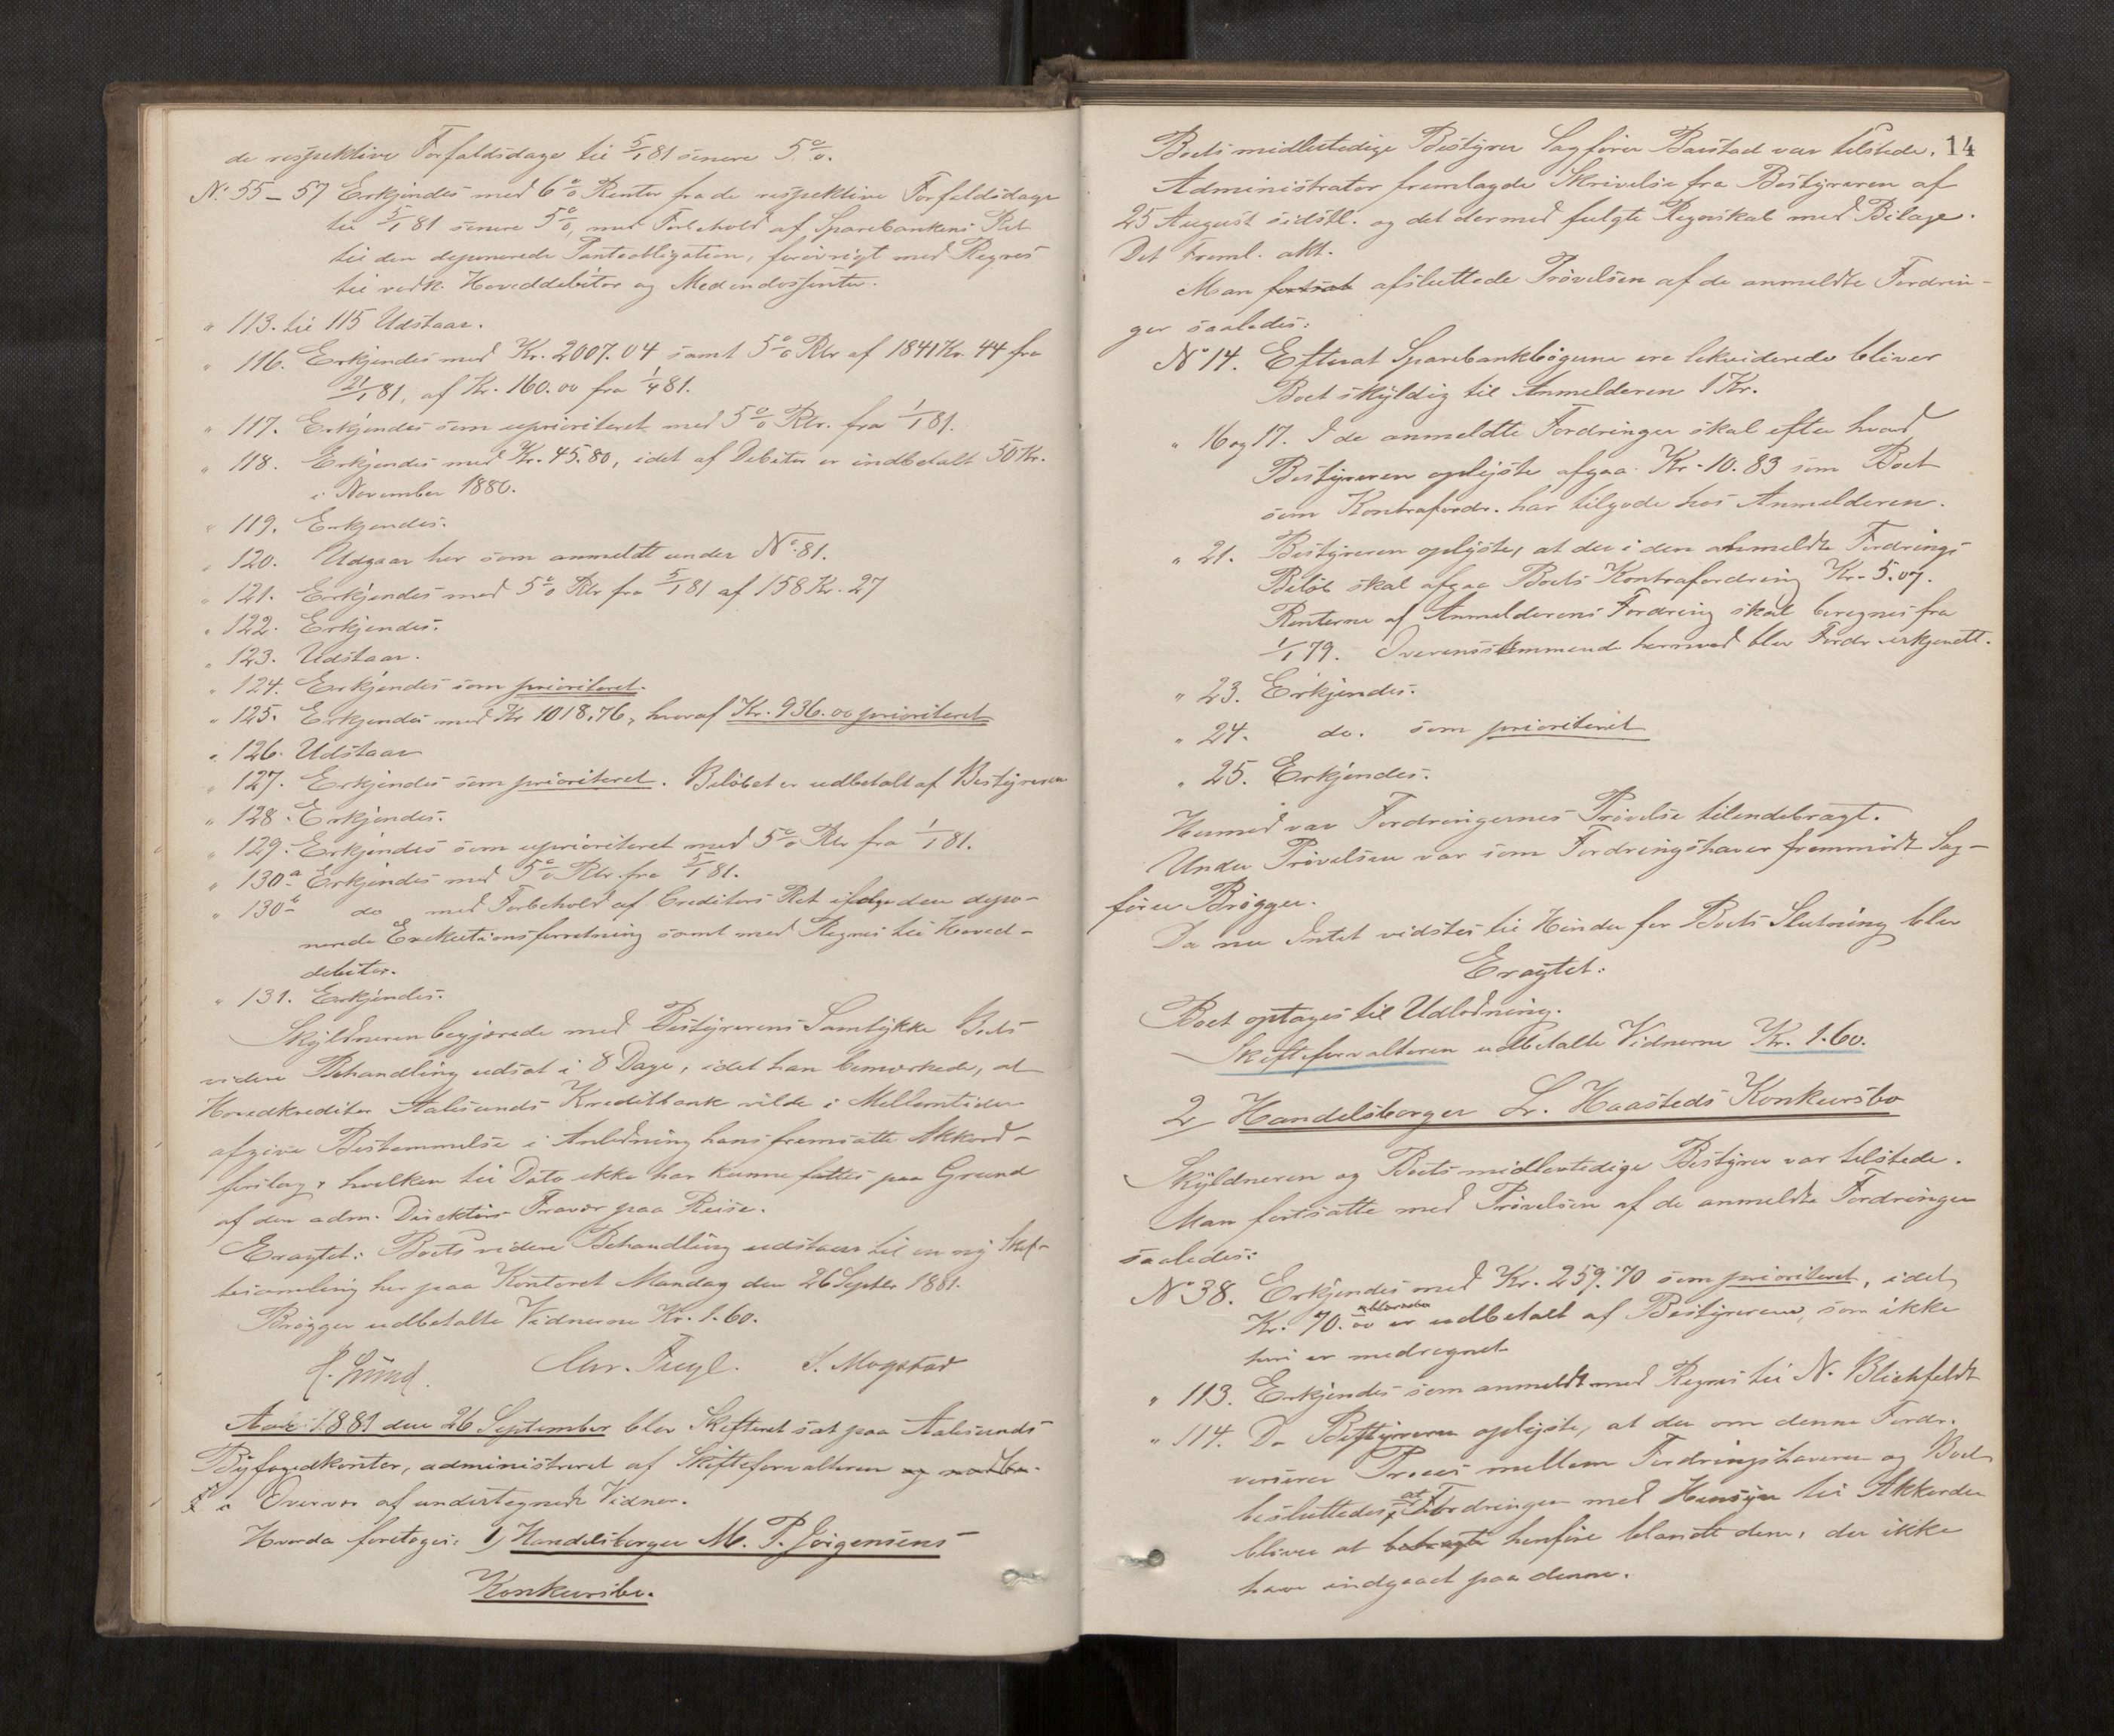 de respektive Forfaldsdage til 5/1 81 senere 5 %.
No. 55 – 57 Erkjendes med 6 % Renter fra de respektive Forfaldsdage
til 5/1 81 senere 5 %, med Forbehold af Sparebankens Ret
til den deponerede Panteobligation, forøvrigt med Regres
til vedk. Hoveddebitor og Medendossenter.
" 113. til 115 Udstaar.
" 116. Erkjendes med Kr. 2007.04 samt 5 % Rtr af 1841 Kr. 44 fra
21/1 81, af Kr. 160.00 fra 1/4 81.
" 117. Erkjendes som uprioriteret med 5 % Rtr. fra 1/1 81.
" 118. Erkjendes med Kr. 45.80, idet af Debitor er indbetalt 50 Kr.
i November 1880.
" 119. Erkjendes.
" 120. Udgaar her som anmeldt under No. 81.
" 121. Erkjendes med 5 % Rtr fra 5/1 81 af 158 Kr. 27
" 122. Erkjendes.
" 123. Udstaar.
" 124. Erkjendes som prioriteret.
" 125. Erkjendes med Kr 1018.76, hvoraf Kr. 936.00 prioriteret
" 126. Udstaar
" 127. Erkjendes som prioriteret. Beløbet er udbetalt af Bestyreren
" 128. Erkjendes.
" 129. Erkjendes som uprioriteret med 5 % Rtr fra 1/1 81.
" 130a Erkjendes med 5 % Rtr. fra 5/1 81.
" 130b do med Forbehold af Creditors Ret ifølge den depo-
nerede Exekutionsforretning samt med Regres til Hoved-
debitor.
" 131. Erkjendes.
Skyldneren begjærede med Bestyrerens Samtykke Boets
videre Behandling udsat i 8 Dage, idet han bemærkede, at
Hovedkreditor Aalesunds Kreditbank vilde i Mellemtiden
afgive Bestemmelse i Anledning hans fremsatte Akkord-
forslag, hvilken til Dato ikke har kunne fattes paa Grund
af den adm. Direktørs Fravær paa Reise.
Eragtet: Boets videre Behandling udstaar til en ny Skif-
tesamling her paa Kontoret Mandag den 26 Septbr 1881.
Brøgger udbetalte Vidnerne Kr. 1.60.
Chr. Fugl. S. Mogstad
Aar 1881 den 26 September blev Skifteret sat paa Aalesunds
Byfogedkontor, administreret af Skifteforvalteren og
i Overvær af undertegnede Vidner.
Hvorda foretoges: 1) Handelsborger M. P. Jørgensens
Konkursbo.
14
Boets midlertidige Bestyrer Sagfører Barstad var tilstede.
Administrator fremlagde Skrivelse fra Bestyreren af
25 August sidstl. og det dermed fulgte Regnskab med Bilage.
Det Freml. akt.
Man fortsat afsluttede Prøvelsen af de anmeldte Fordrin-
ger saaledes:
No 14. Efterat Sparebankbøgerne ere lekviderede bliver
Boet skyldig til Anmelderen 1 Kr.
" 16 og 17. I de anmeldte Fordringer skal efter hvad
Bestyreren oplyste afgaa Kr. 10.83 som Boet
som Kontrafordr. har tilgode hos Anmelderen.
" 21. Bestyreren oplyste, at der i den anmeldte Fordrings
Beløb skal afgaa Boets Kontrafordring Kr. 5.07.
Renterne af Anmelderens Fordring skal beregnes fra
1/1 79. Overensstemmende hermed blev Fordr erkjendt.
" 23. Erkjendes.
" 24. do. som prioriteret
" 25. Erkjendes.
Hermed var Fordringernes Prøvelse tilendebragt.
Under Prøvelsen var som Fordringshaver fremmødt Sag-
fører Brøgger.
Da nu Intet vidstes til Hinder for Boets Slutning blev
Eragtet:
Boet optages til Udlodning.
Skifteforvalteren udbetalte Vidnerne Kr. 1.60.
2) Handelsborger L. Haasteds Konkursbo
Skyldneren og Boets midlertidige Bestyrer var tilstede.
Man fortsatte med Prøvelsen af de anmeldte Fordringer
saaledes:
No 38. Erkjendes med Kr. 259.70 som prioriteret, idet
Kr. 70.00 er udbetalt af Bestyreren, som ikke
heri er medregnet
" 113. Erkjendes som anmeldt med Regres til N. Blichfeldt
" 114. Da Bestyreren oplyste, at der om denne Fordr.
verserer Proces mellem Fordringshaveren og Boet
besluttedes, at Fordringen med Hensyn til Akkorden
bliver at betragte henføre blandt dem, der ikke
have indgaaet paa denne.